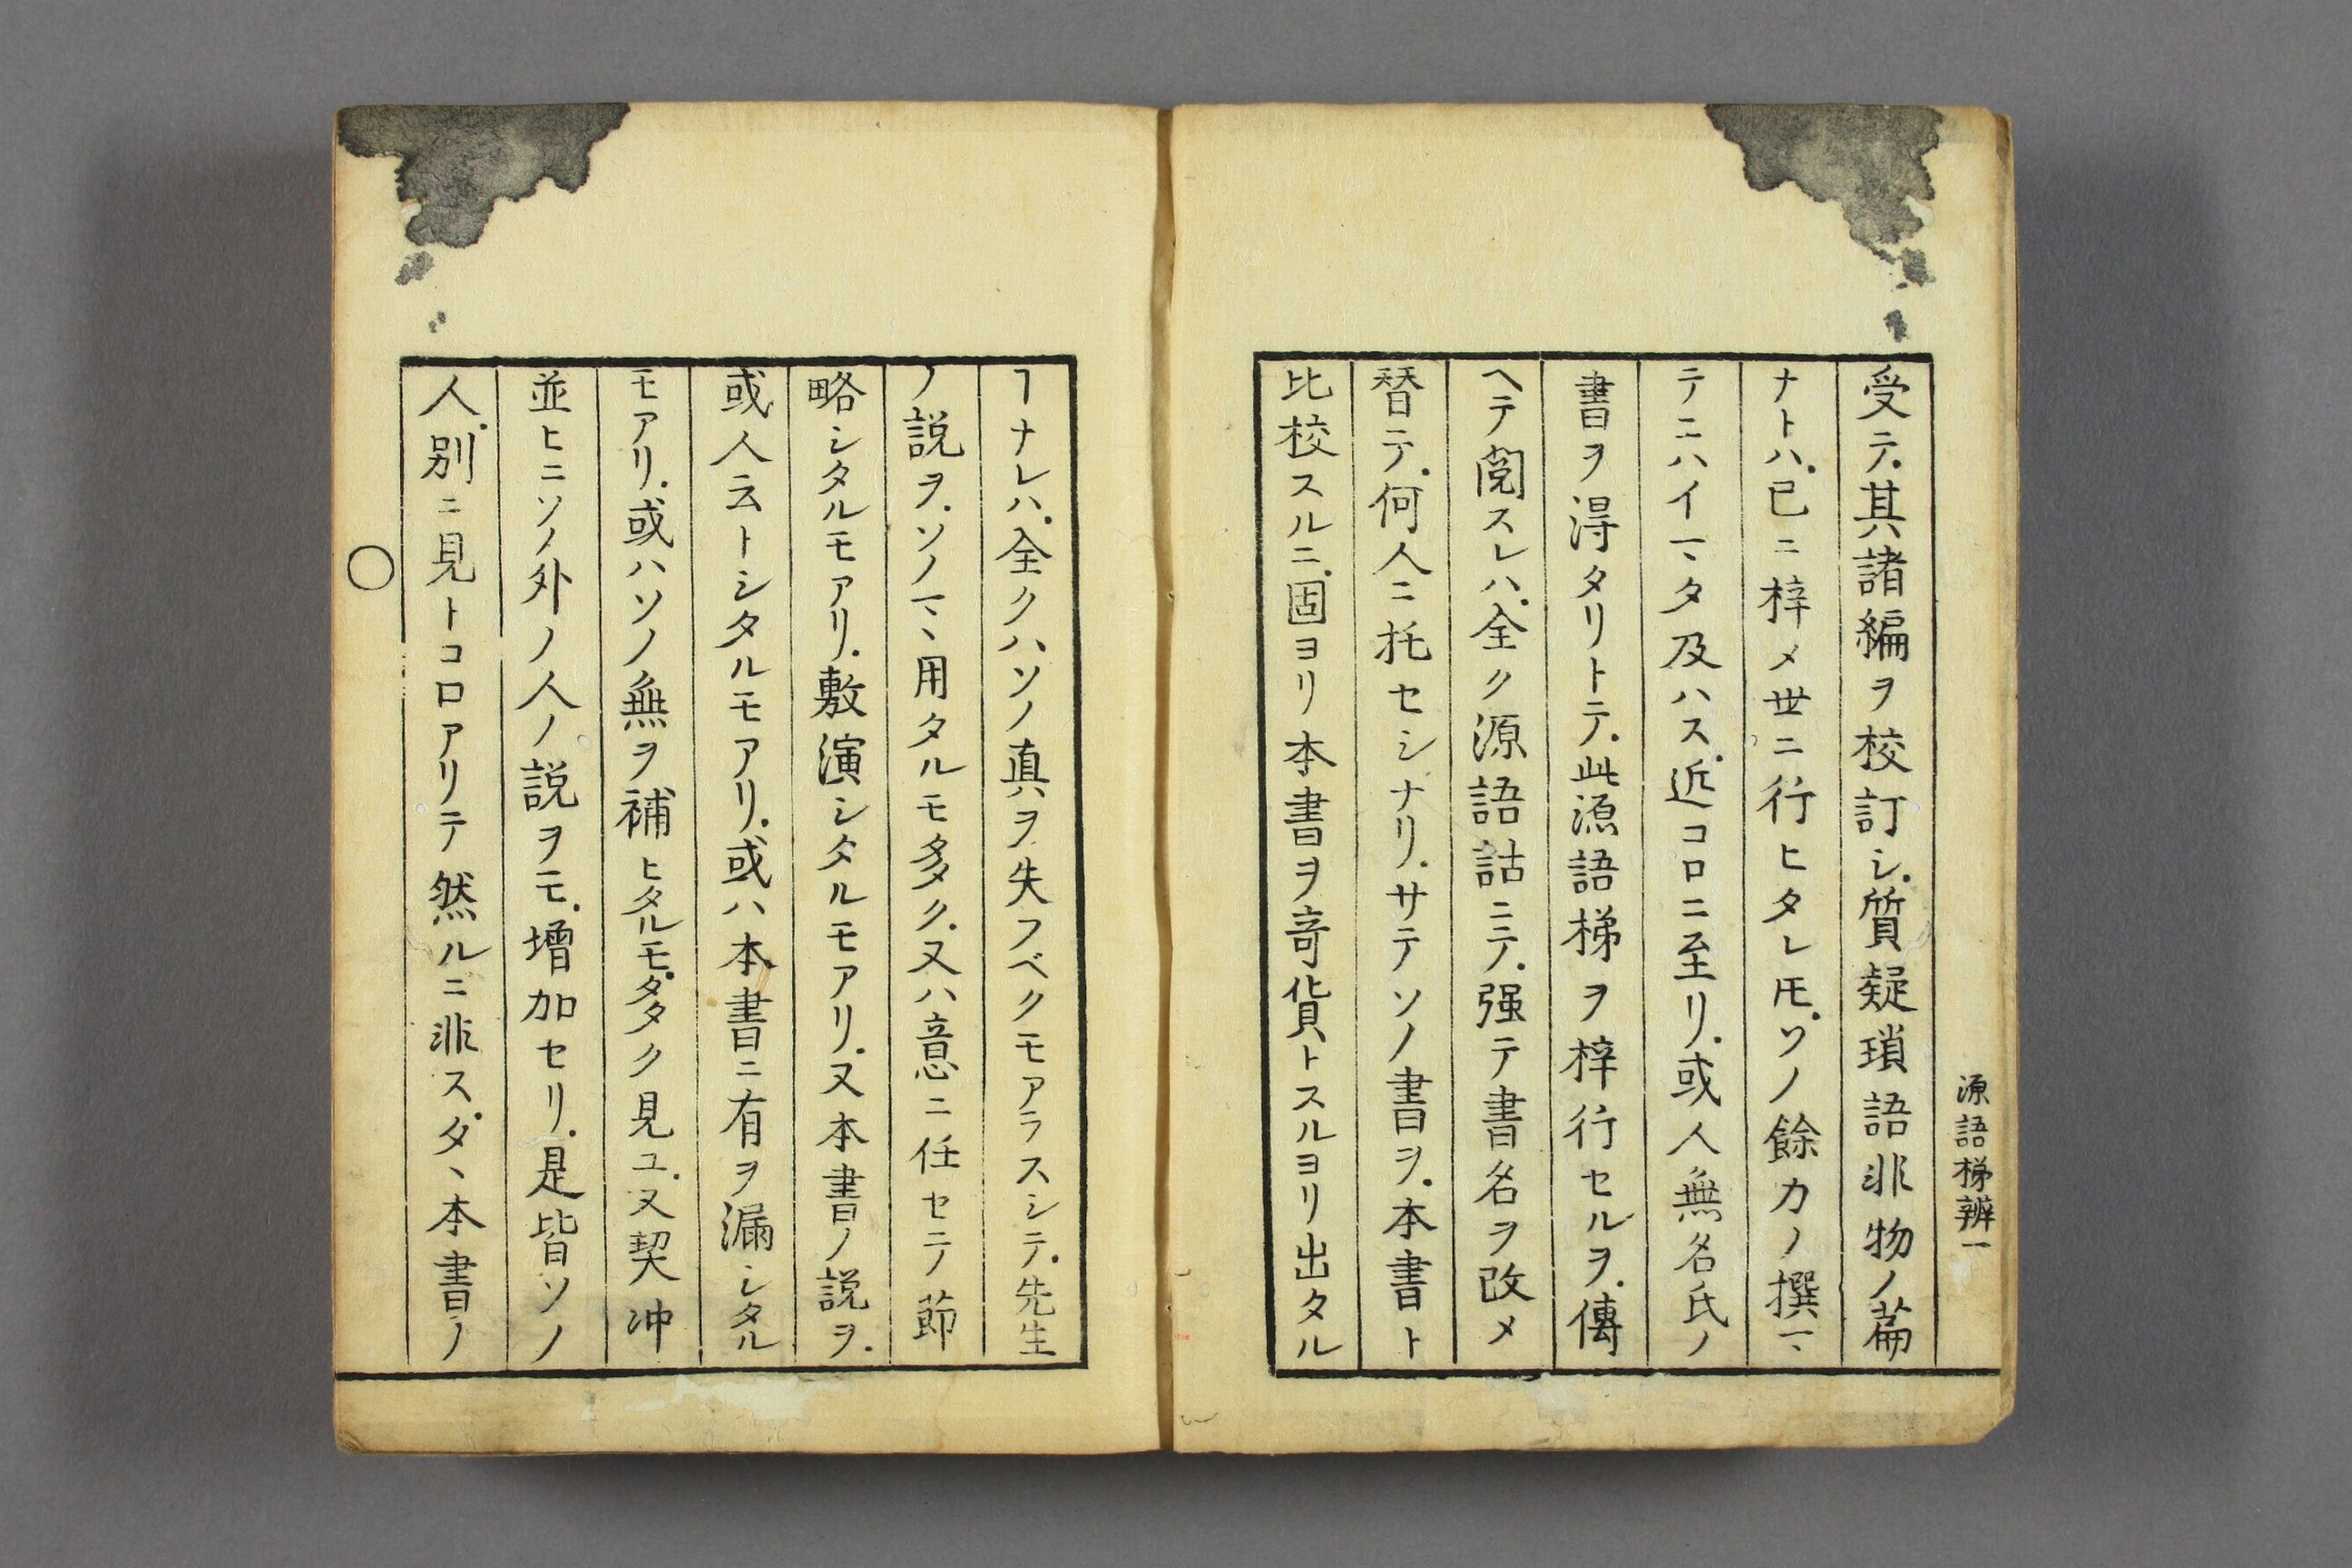 受テ.其諸編ヲ校訂シ.質疑瑣語非物ノ篇
ナトハ.已ニ梓メ世ニ行ヒタレ𪜈.ソノ餘カノ撰マヽ
テニハイマヽタ及ハス.近コロニ至リ.或人無名氏ノ
書ヲ淂タリトテ.此源語梯ヲ梓行セルヲ.傳
ヘテ閲スレハ.全ク源語詁ニテ.强テ書名ヲ改メ
替テ.何人ニ托セシナリ.サテソノ書ヲ.本書ト
比校スルニ.固ヨリ本書ヲ竒貨トスルヨリ出タル
源語梯辨一
ヿナレハ.全クハソノ真ヲ失フベクモアラスシテ.先生
ノ説ヲ.ソノマヽ用タルモ多ク.又ハ意ニ任セテ節
略シタルモアリ.敷演シタルモアリ.又本書ノ説ヲ.
或人云トシタルモアリ.或ハ本書ニ有ヲ漏シタル
モアリ.或ハソノ無ヲ補ヒタルモ.タタク見ユ.又契冲
並ヒニソノ外ノ人ノ説ヲモ.増加セリ.是皆ソノ
人.別ニ見トコロアリテ然ルニ非ス.タヽ本書ノ